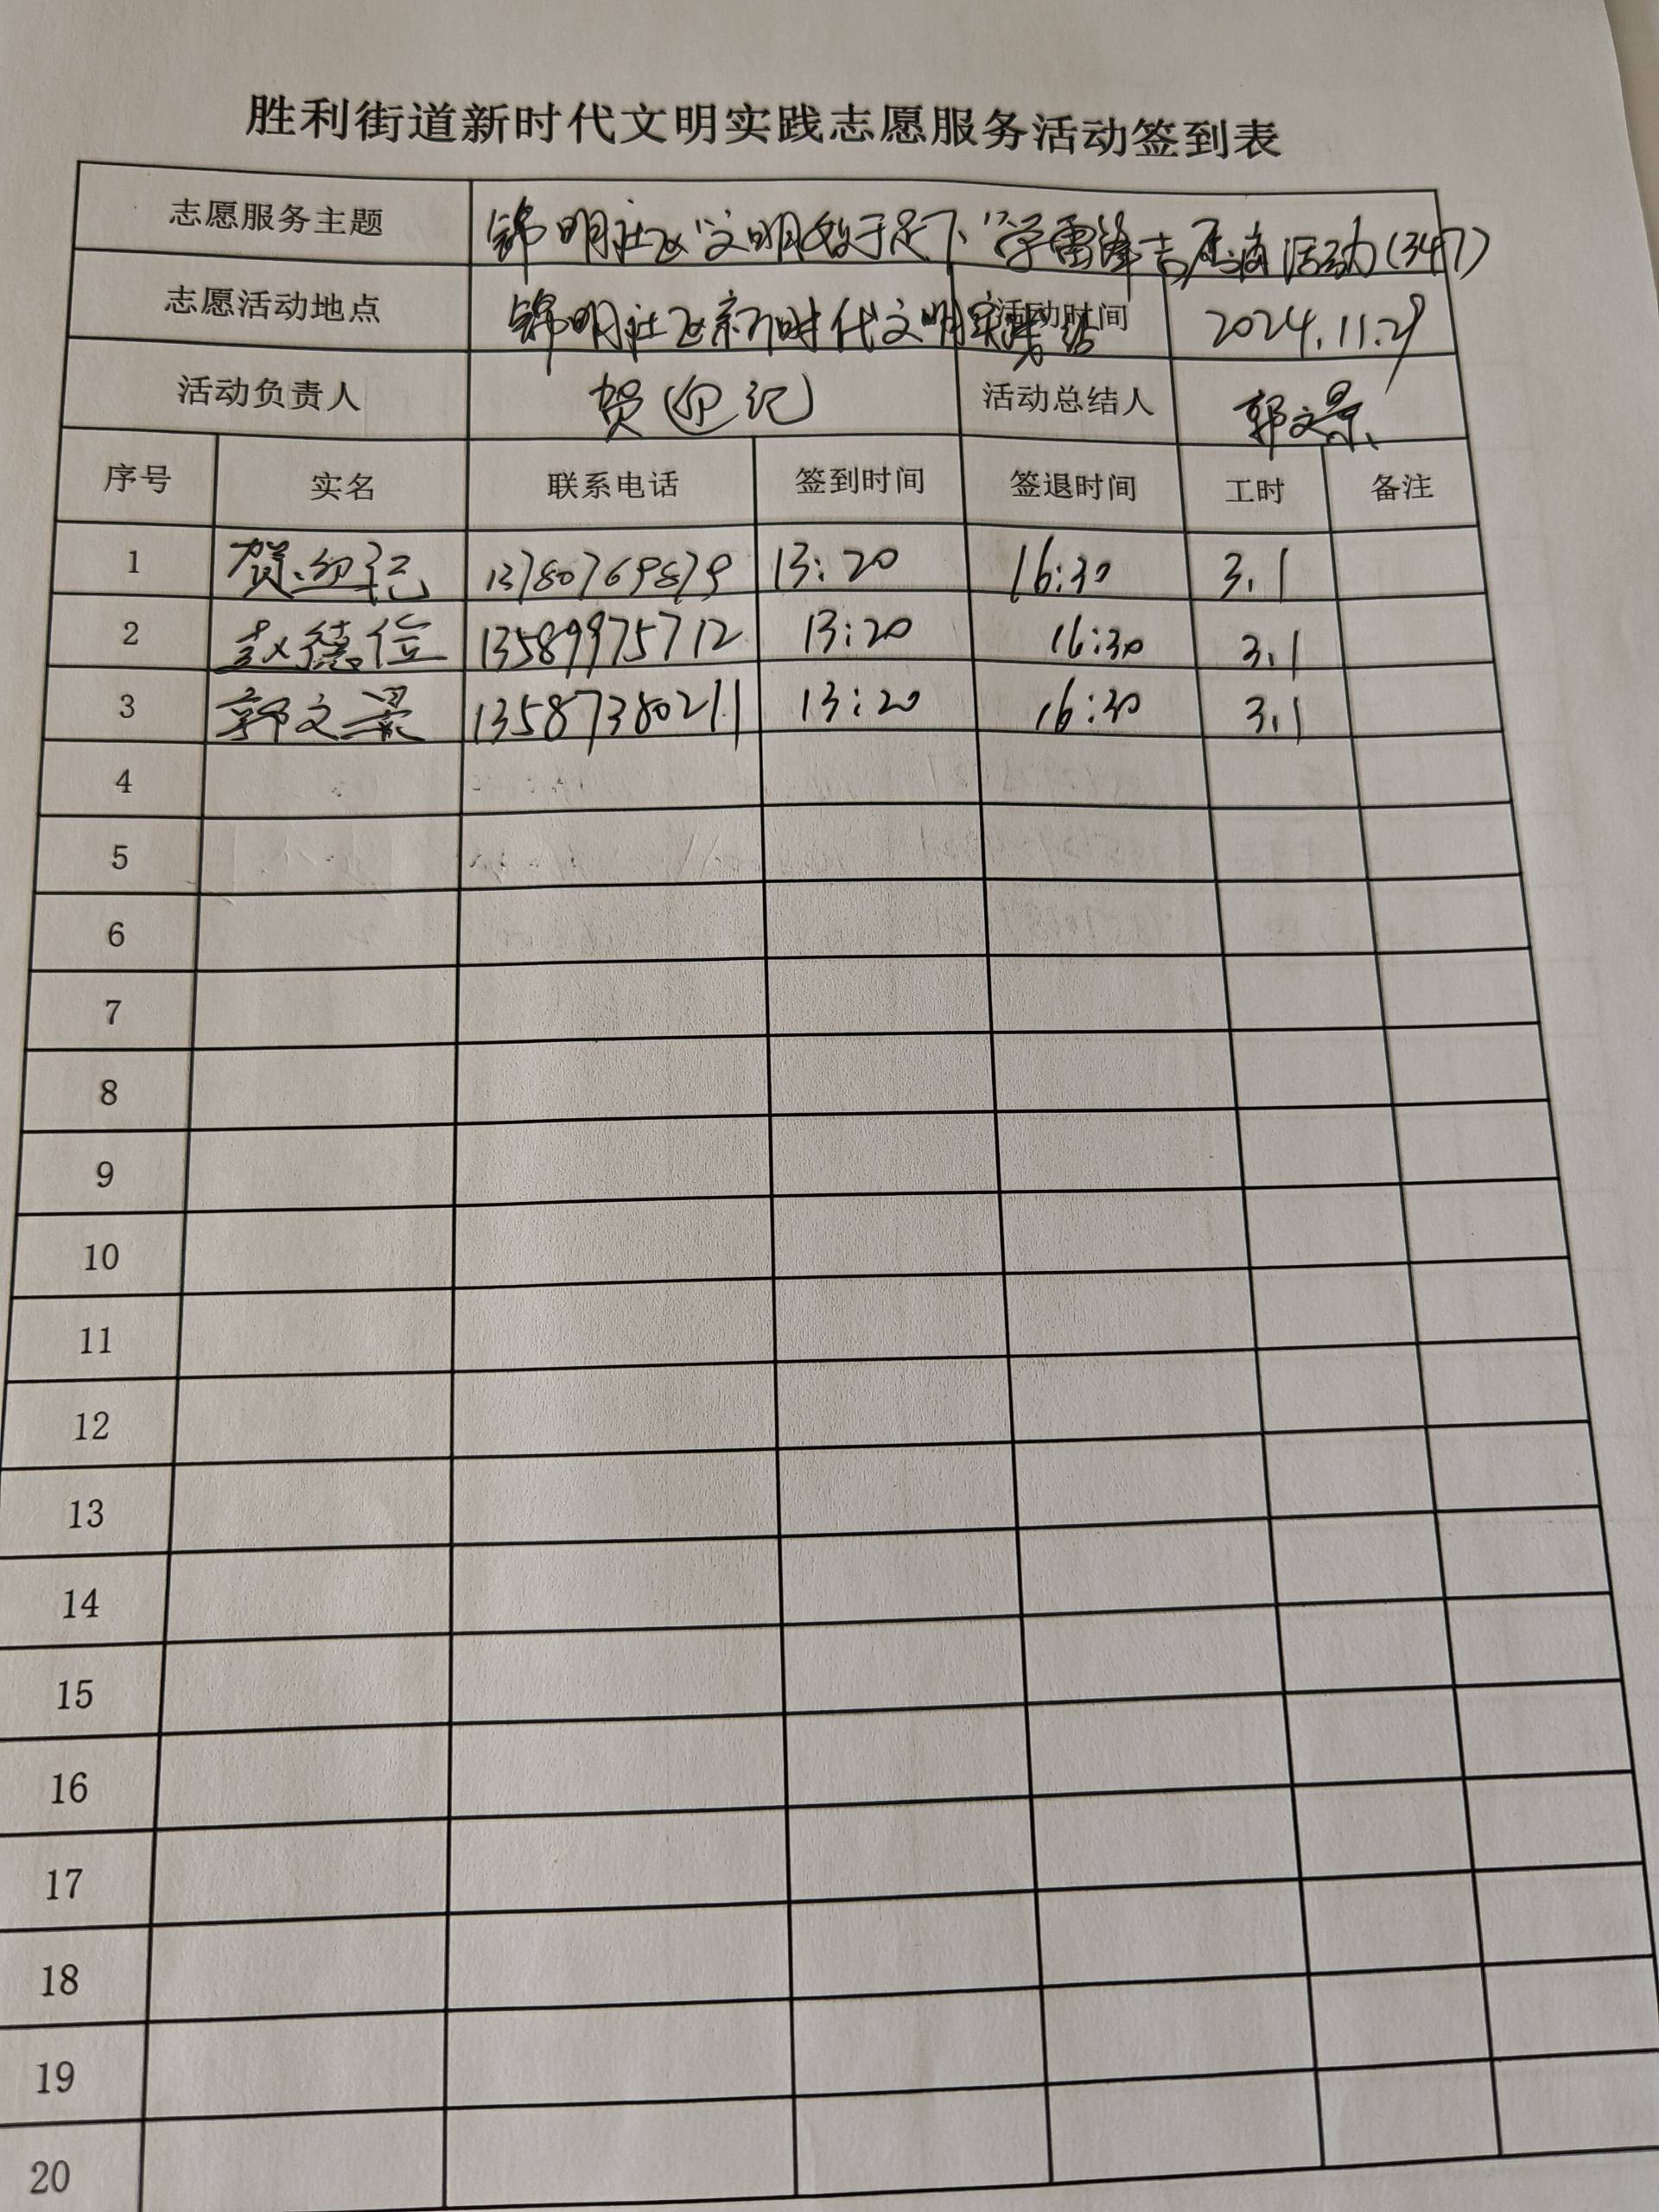 胜利街道新时代文明实践志愿服务活动签到表
志愿服务主题 锦明社区“文明始于足下”学雷锋志愿活动(347)
志愿活动地点 锦明社区新时代文明实践站 活动时间 2024.11.29
活动负责人 贺 记 活动总结人 郭文景
序号 实名 联系电话 签到时间 签退时间 工时 备注
1 贺 记 13780769879 13:20 16:30 3.1
2 赵德信 13589975712 13:20 16:30 3.1
3 郭文景 13587380211 13:20 16:30 3.1
4
5
6
7
8
9
10
11
12
13
14
15
16
17
18
19
20